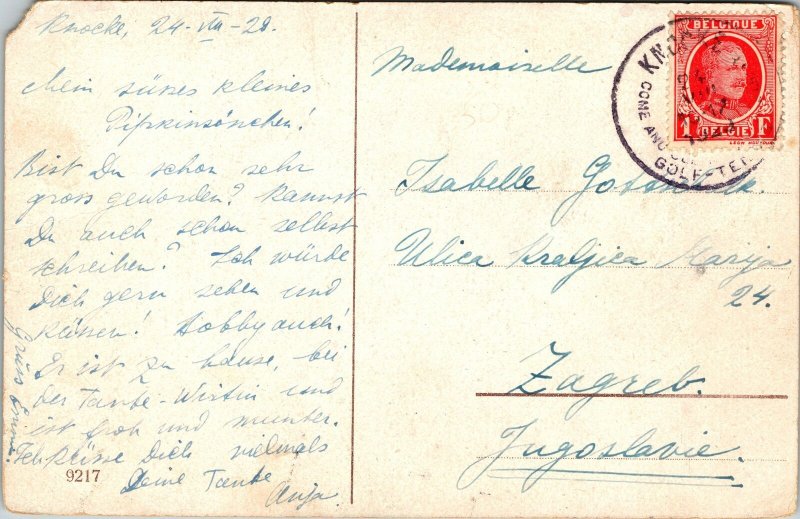 Knocke, 24-VIII-28.
Mein süsses kleines
Pipkinsönchen!
Bist Du schon sehr
gross geworden? Kannst
Du auch schon selbst
schreiben? Ich würde
Dich gern sehen und
küssen! Bobby auch!
Er ist zu hause, bei
der Tante-Wirtin und
ist froh und munter.
Ich küsse Dich vielmals
Deine Tante
Anja.
Grüss
9217
Mademoiselle
Isabelle
Ulica Kraljica Marija
24.
Zagreb.
Jugoslavie.
BELGIQUE
1 F
BELGIË
KNOCKE
COME AND
GOLF-TE